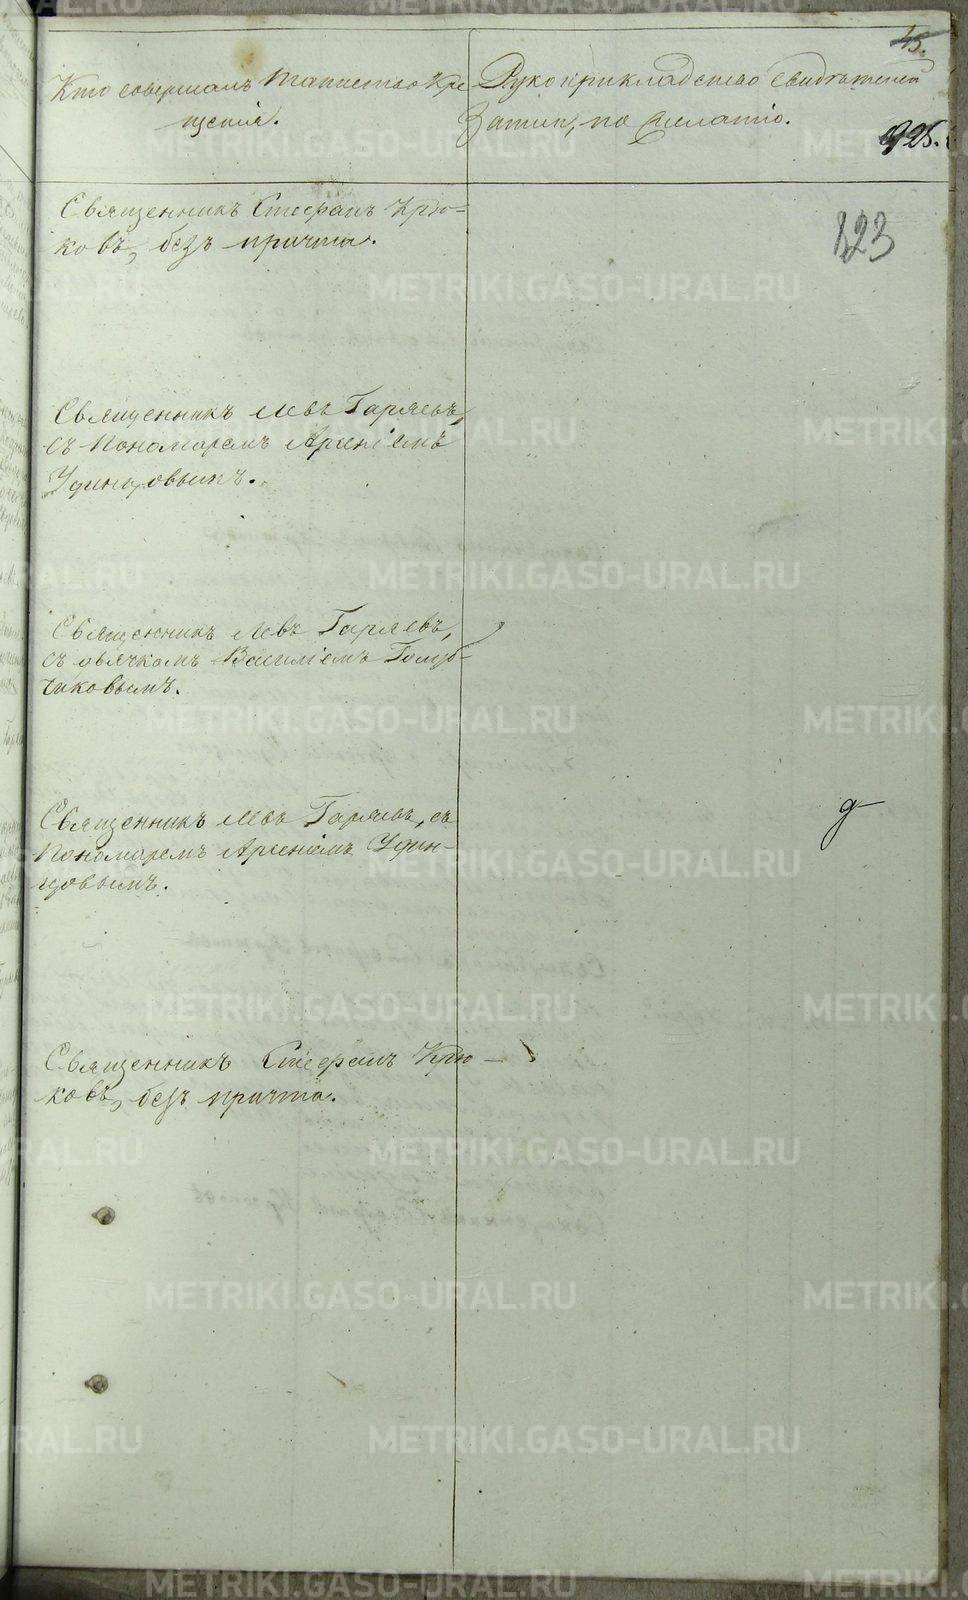 45.
Кто совершалъ таинство Кре-
щенія.
Рукоприкладство свидѣтелей
записи, по желанію.
225.
123
Священникъ Стефанъ Крю-
ковъ, безъ причта.
Священникъ Левъ Гаряевъ,
съ Пономаремъ Арсеніемъ
Удинцовымъ.
Священникъ Левъ Гаряевъ,
съ дьячкомъ Василіемъ Голуб-
чиковымъ.
Священникъ Левъ Гаряевъ, съ
Пономаремъ Арсеніемъ Удин-
цовымъ.
Священникъ Стефанъ Крю-
ковъ, безъ причта.
METRIKI.GASO-URAL.RU